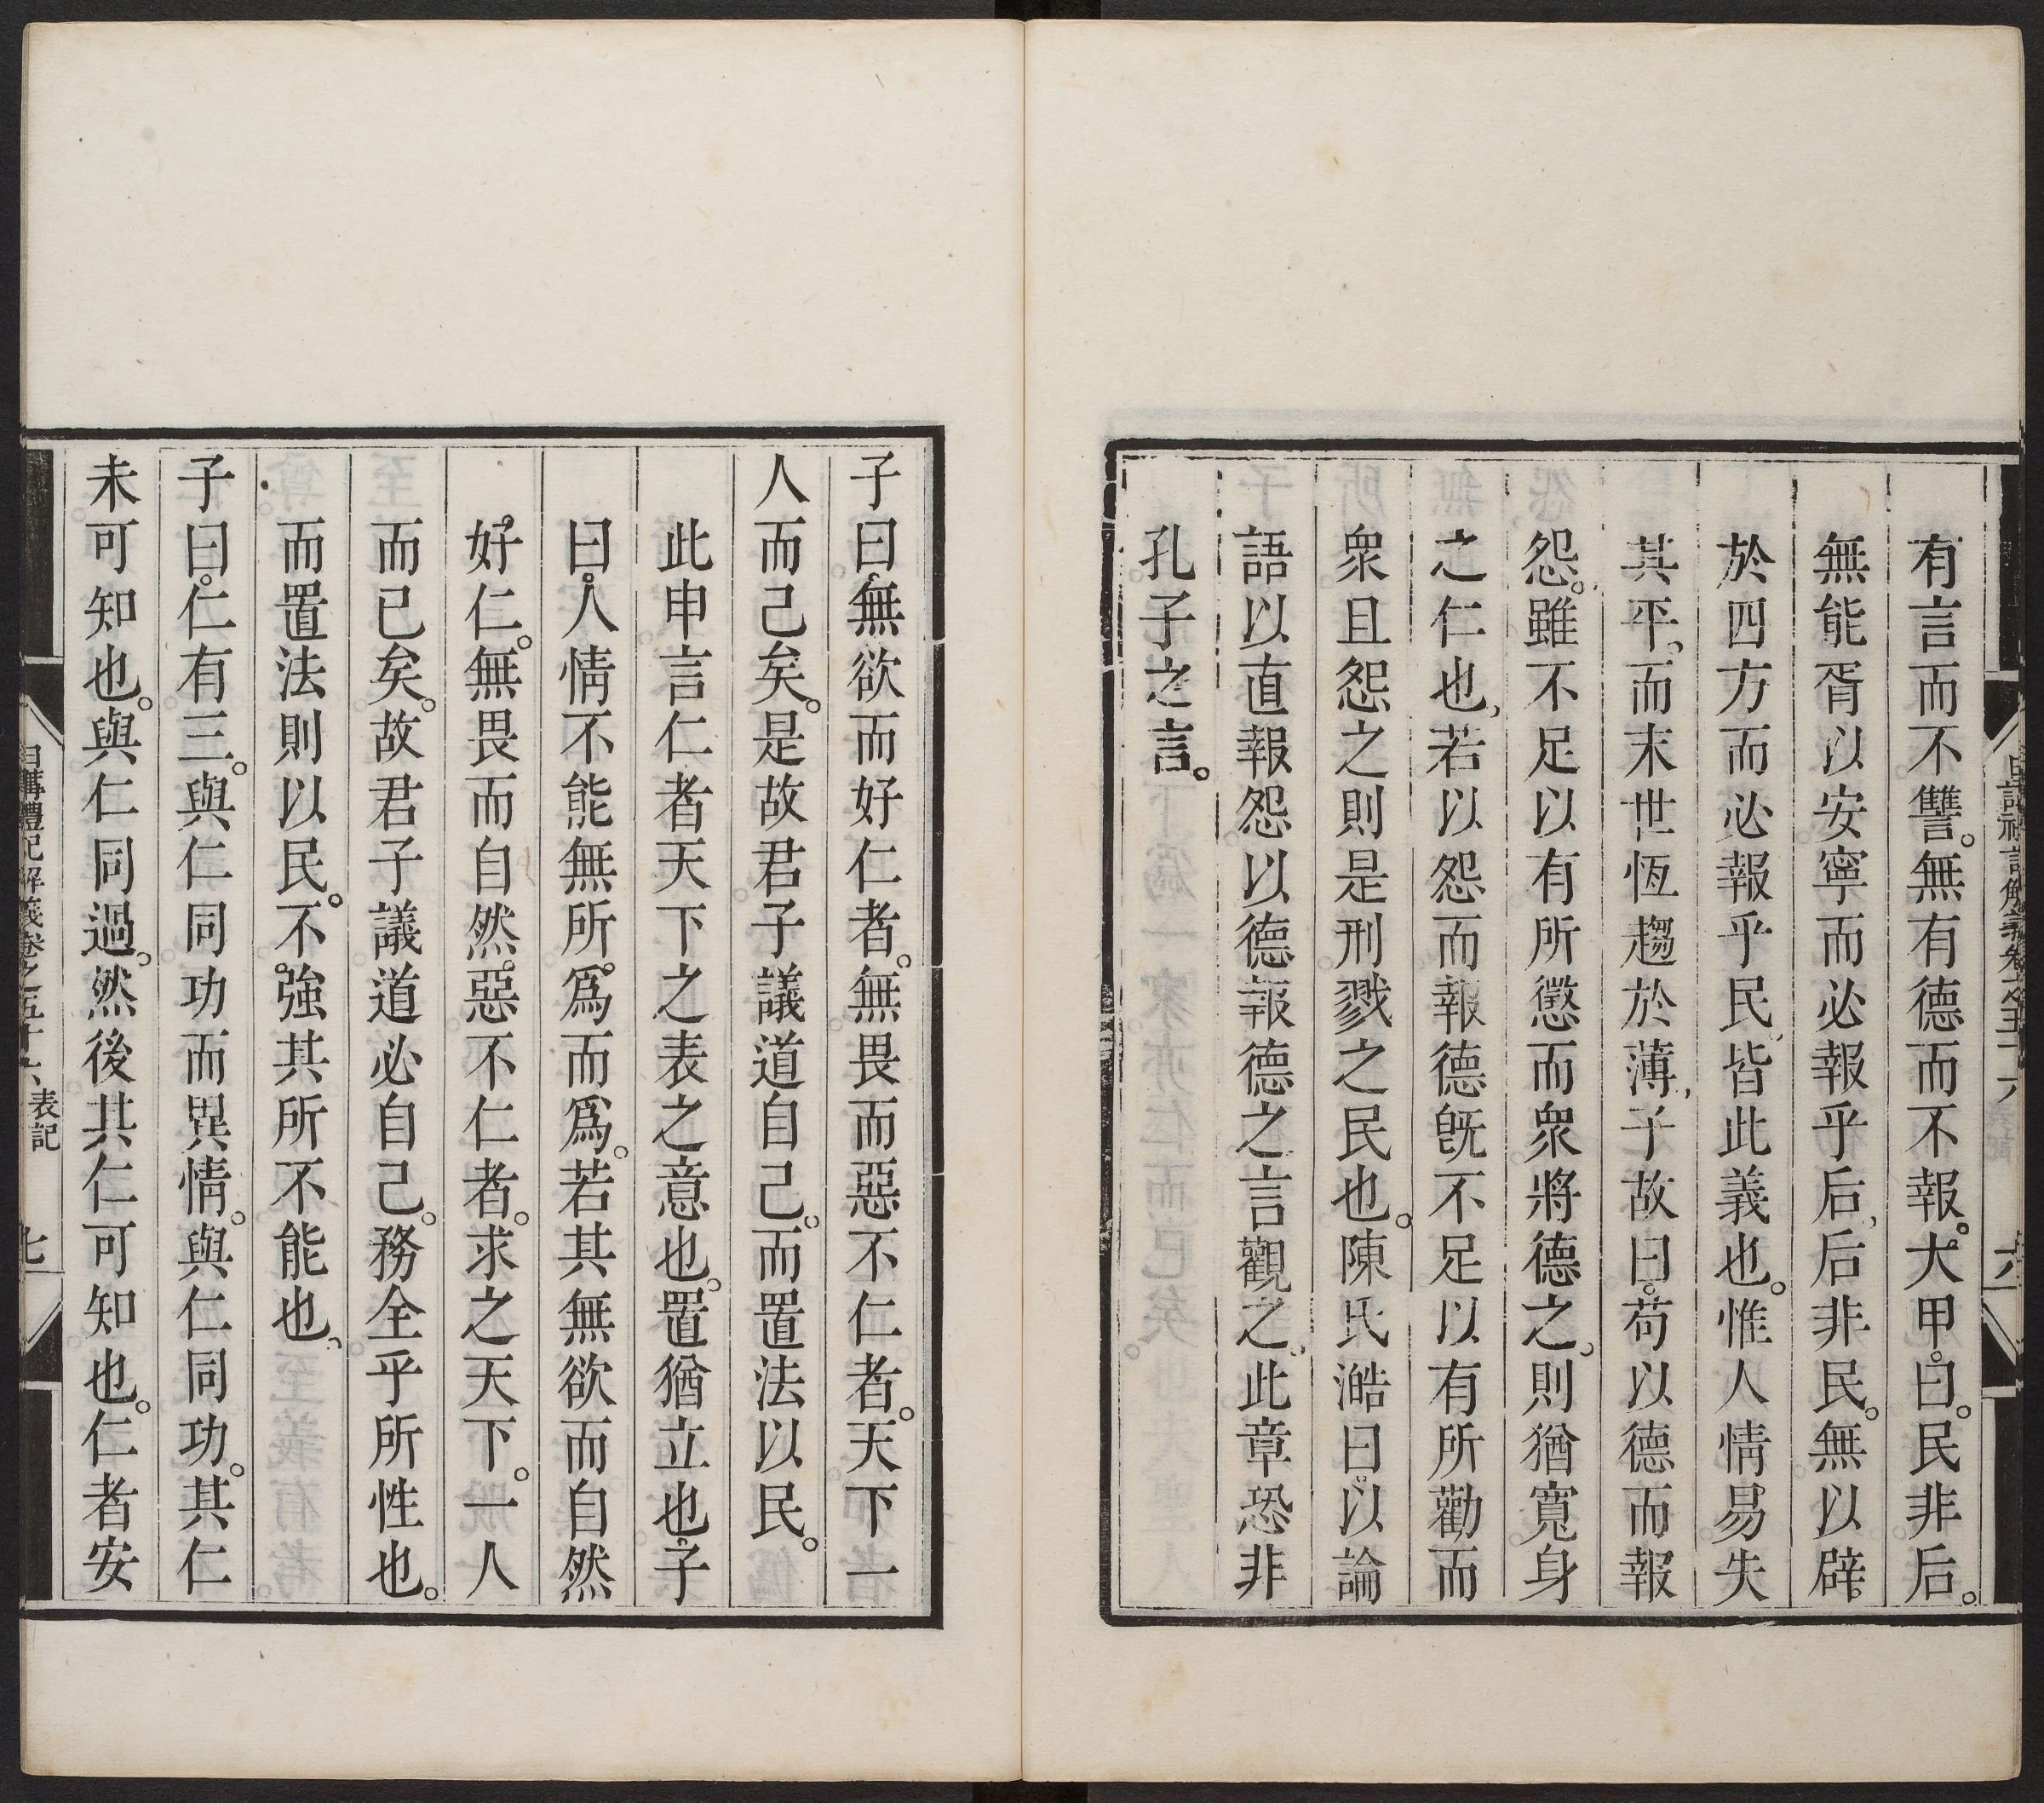 有言而不讐。無有德而不報。大甲。曰。民非后。
無能胥以安寧而必報乎后、后非民。無以辟
於四方而必報乎民、皆此義也。惟人情易失
其平。而末世恆趨於薄、子故曰。苟以德而報
怨。雖不足以有所懲而衆將德之、則猶寬身
之仁也、若以怨而報德旣不足以有所勸而
衆且怨之則是刑戮之民也。陳氏澔曰。以論
語以直報怨。以德報德之言觀之、此章恐非
孔子之言。
子曰。無欲而好仁者。無畏而惡不仁者。天下一
人而已矣。是故君子議道自己。而置法以民。
此申言仁者天下之表之意也。置猶立也。子
曰。人情不能無所爲而爲。若其無欲而自然
好仁。無畏而自然惡不仁者。求之天下。一人
而已矣。故君子議道必自己。務全乎所性也。
而置法則以民。不強其所不能也、
子曰。仁有三。與仁同功而異情。與仁同功。其仁
未可知也。與仁同過。然後其仁可知也。仁者安
日講禮記解義卷之五十六 表記 七